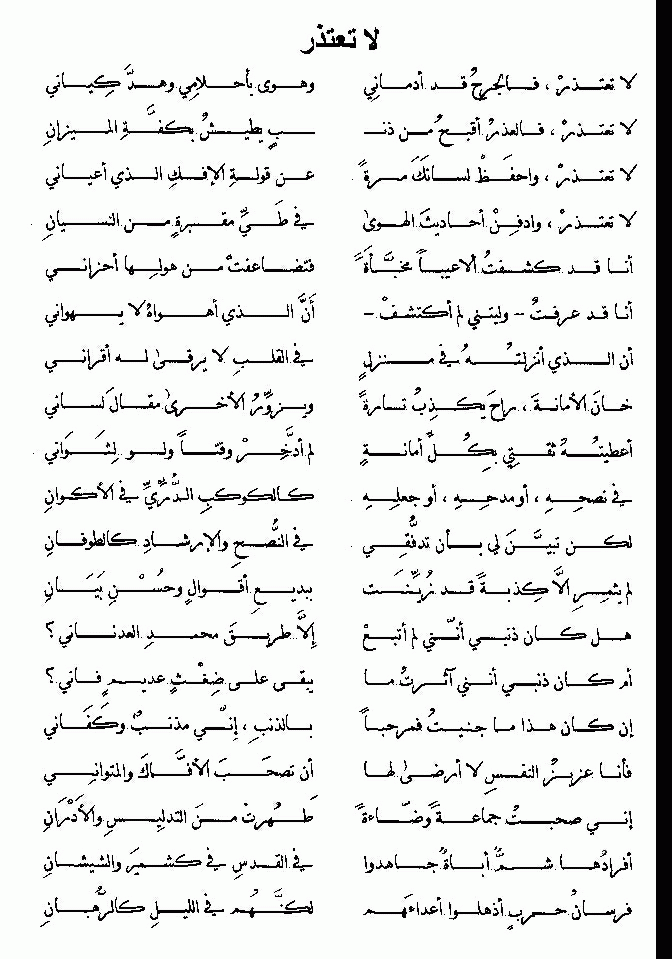 لا تعتذر
لا تعتذرْ ، فالجرحُ قد أدماني وهوى بأحلامِي وهدَّ كِياني
لا تعتذرْ ، فالعذرُ أقبحُ من ذنـ ـبٍ يطيشُ بكفَّةِ الميزانِ
لا تعتذرْ ، واحفظْ لسانَكَ مرةً عن قولةِ الإفكِ الذي أعياني
لا تعتذرْ ، وادفنْ أحاديثَ الهوىٰ في طَيِّ مقبرةٍ من النسيانِ
أنا قد كشفتُ ألاعيباً مخبَّأةً فتضاعفتْ من هولِها أحزاني
أنا قد عرفتُ - وليتني لم أكتشفْ - أنَّ الذي أهواهُ لا يهواني
أن الذي أنزلتُهُ في منزلٍ في القلبِ لا يرقىٰ له أقراني
خانَ الأمانةَ ، راحَ يكذِبُ تسارةً ويزوِّرُ الأخرىٰ مقالَ لساني
أعطيتُهُ ثقتِي بِكُلِّ أمانةٍ لم أدَّخِرْ وقتاً ولو لِثَوَاني
في نصحِهِ ، أو مدحِهِ ، أو جعلِهِ كالكوكبِ الدُّرِّيِّ في الأكوانِ
لكن تبيَّنَ لي بأن تدفُّقِي في النُّصحِ والإرشادِ كالطوفانِ
لم يثمِرِ الاَّ كِذبةً قد زُيِّنَت ببديعِ أقوالٍ وحُسْنِ بَيَانِ
هل كان ذنبي أنّني لم أتبعْ إلاَّ طريقَ محمدِ العدناني ؟
أم كان ذنبي أنني آثرتُ ما يبقى على ضِغْثٍ عديمٍ فاني ؟
إن كان هذا ما جنيتُ فمرحباً بالذنبِ ، إنَّني مذنبٌ وكَفَاني
فأنا عزيزُ النفسِ لا أرضىٰ لها أن تصحَبَ الأفَّاكَ والمتواني
إني صحبتُ جماعةً وضّاءةً طهُرتْ منَ التدليسِ والأَدْرَانِ
أفرادُها شمٌّ أباةٌ جاهدوا في القدسِ في كشميرَ والشيشانِ
فرسانُ حربٍ أذهلوا أعداءَهم لكنَّهُم في الليلِ كالرُّهبانِ